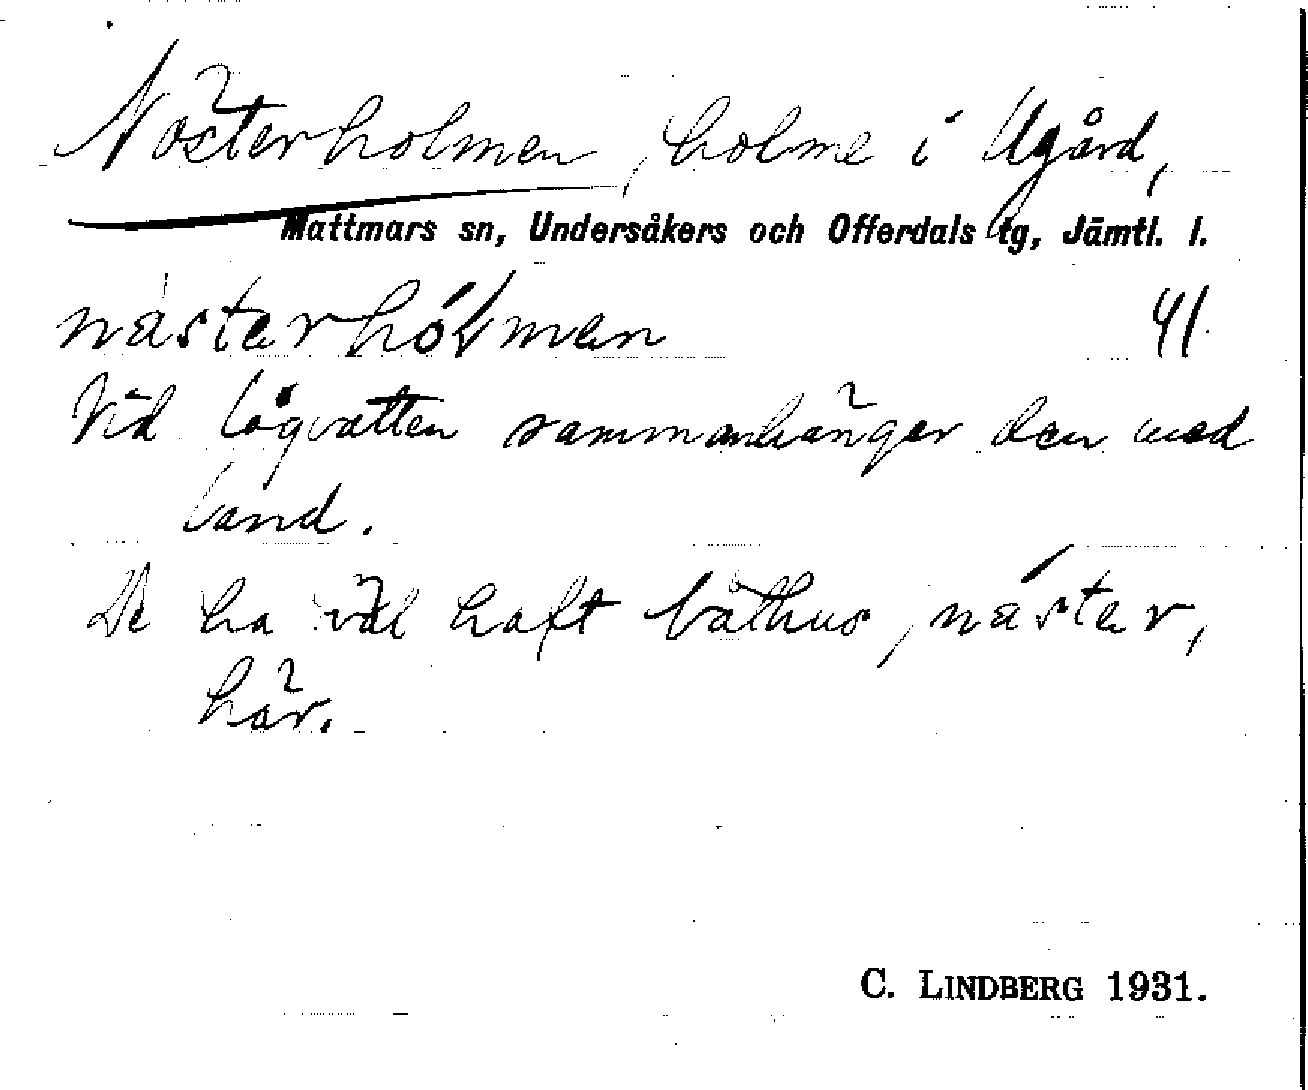 Nösterholmen, holme i Ugård,
Mattmars sn, Undersåkers och Offerdals tg, Jämtl. l.
nästerhólmen 41.
Vid lågvatten sammanhänger den med
land.
De ha väl haft båthus, näster,
här.
C. LINDBERG 1931.